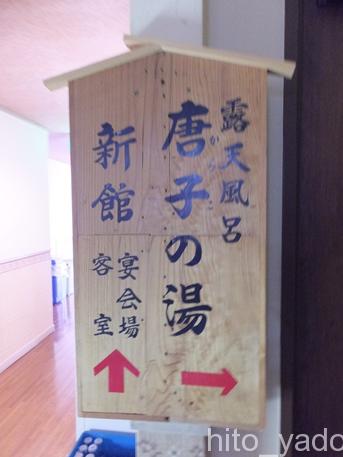 露天風呂
唐子の湯
からこ
新館
宴会場
客室
hito_yado